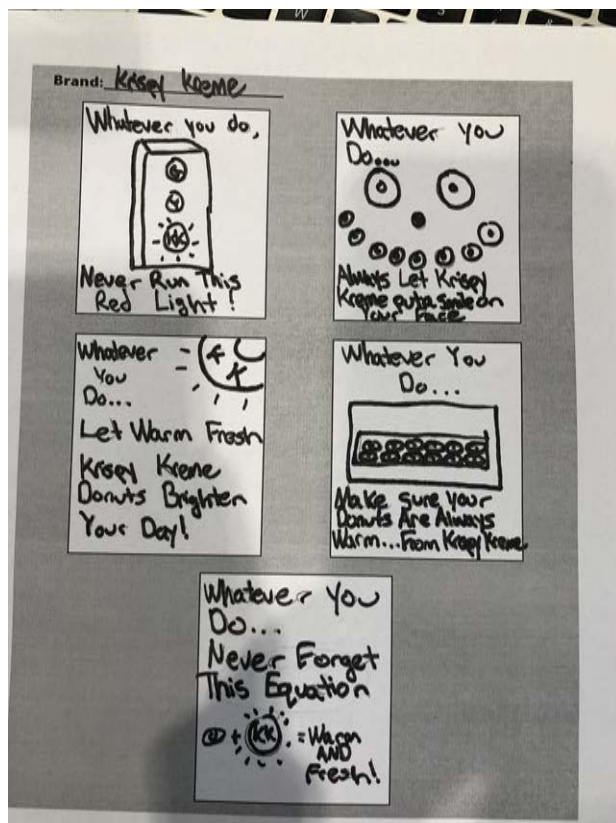 W
Brand: Krispy Kreme
Whatever you do,
G
Y
KK
Never Run This
Red Light!
Whatever You
Do...
Always Let Krispy
Kreme put a smile on
Your Face
Whatever
You
Do...
K K
Let Warm Fresh
Krispy Kreme
Donuts Brighten
Your Day!
Whatever You
Do...
Make Sure your
Donuts Are Always
Warm... From Krispy Kreme
Whatever You
Do...
Never Forget
This Equation
+ KK = Warm
AND
Fresh!